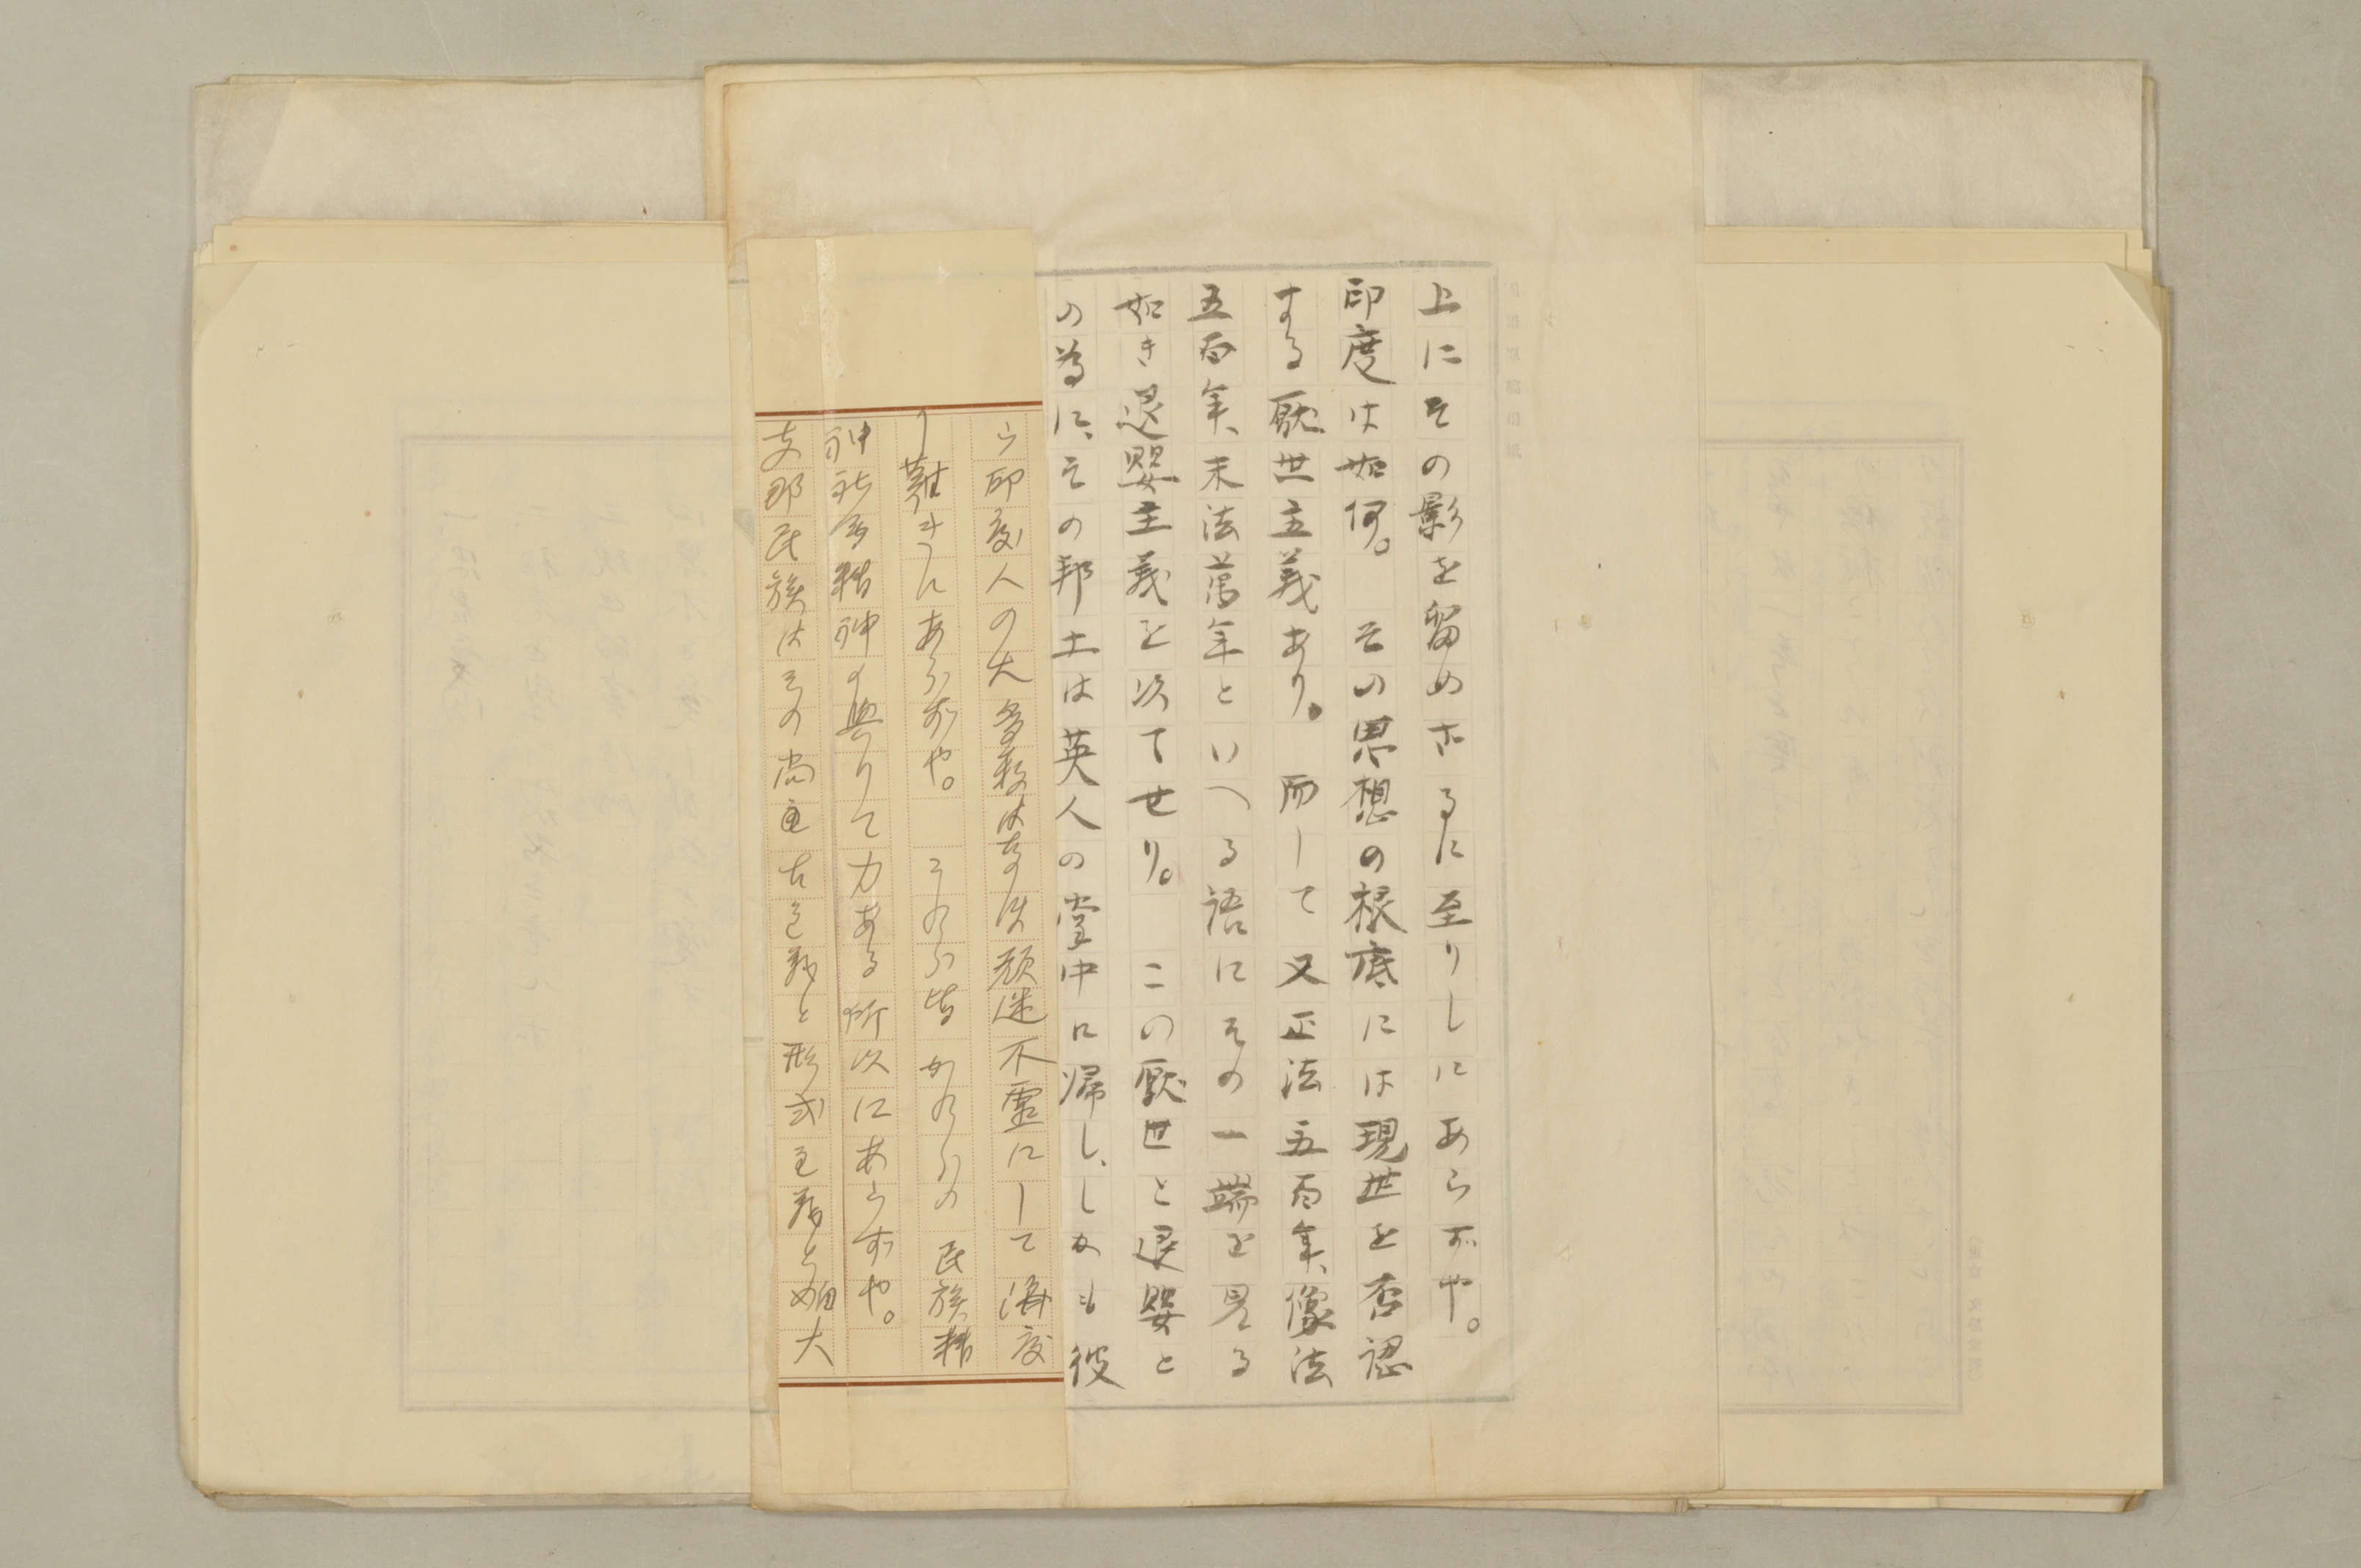 上にその影を留めざるに至りしにあらずや。
印度は如何。その思想の根底には現世を否認
する厭世主義あり。而して又正法五百年、像法
五百年、末法萬年といへる語にその一端を見る
如き退嬰主義を以てせり。この厭世と退嬰と
の為に、その邦土は英人の掌中に帰し、しかも彼
印度人の大多数は頑迷不霊にして済度
し難きにあらずや。これらは皆かれらの民族精
神を精神の與りて力ある所以にあらずや。
支那民族はその尚古主義と形式主義と自大